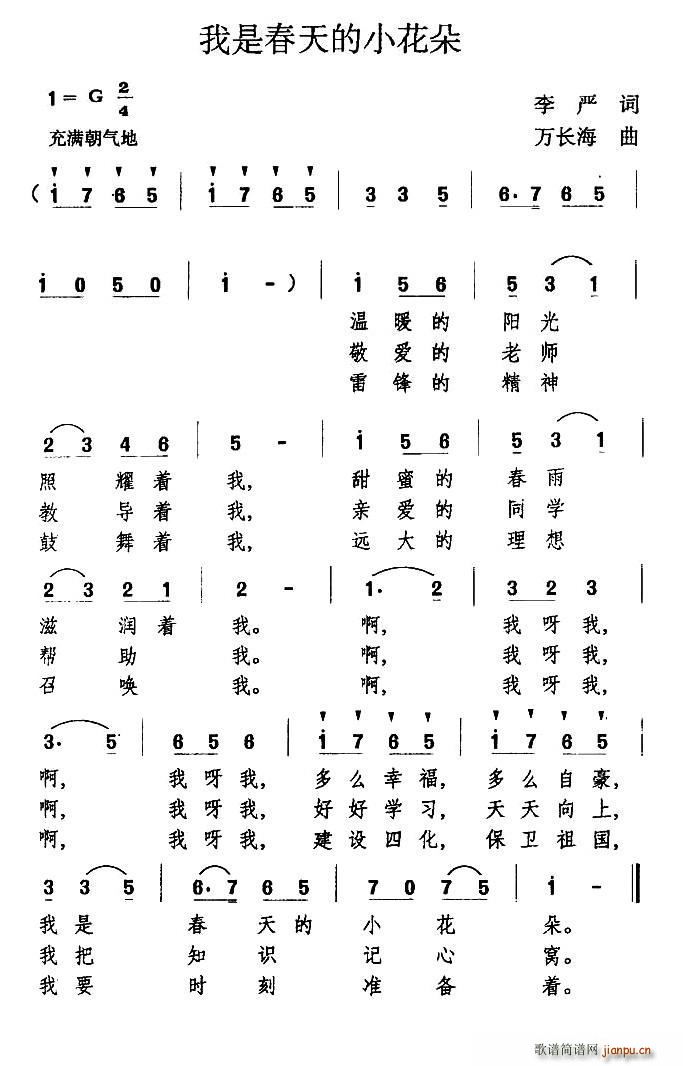 我是春天的小花朵
1= G 2/4
李 严 词
充满朝气地
万长海 曲
( i 7 6 5 | i 7 6 5 | 3 3 5 | 6. 7 6 5 |
i 0 5 0 | i - ) | i 5 6 | 5 3 1 |
温 暖 的 阳 光
敬 爱 的 老 师
雷 锋 的 精 神
2 3 4 6 | 5 - | i 5 6 | 5 3 1 |
照 耀 着 我, 甜 蜜 的 春 雨
教 导 着 我, 亲 爱 的 同 学
鼓 舞 着 我, 远 大 的 理 想
2 3 2 1 | 2 - | 1. 2 | 3 2 3 |
滋 润 着 我。 啊, 我 呀 我,
帮 助 我。 啊, 我 呀 我,
召 唤 我。 啊, 我 呀 我,
3. 5 | 6 5 6 | i 7 6 5 | i 7 6 5 |
啊, 我 呀 我, 多 么 幸 福, 多 么 自 豪,
啊, 我 呀 我, 好 好 学 习, 天 天 向 上,
啊, 我 呀 我, 建 设 四 化, 保 卫 祖 国,
3 3 5 | 6. 7 6 5 | 7 0 7 5 | i - ‖
我 是 春 天 的 小 花 朵。
我 把 知 识 记 心 窝。
我 要 时 刻 准 备 着。
歌谱简谱网 jianpu.cn